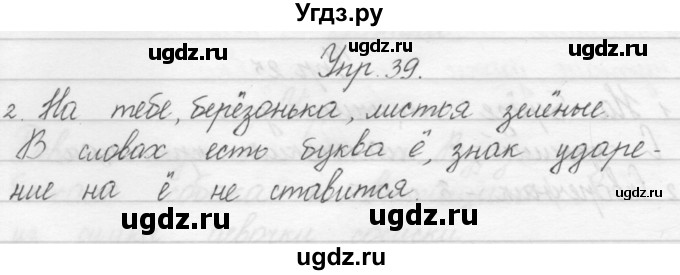 Угдз.ру
ugdz.ru ugdz.ru
Упр. 39.
2. На тебе, берёзонька, листья зелёные
ugdz.ru ugdz.ru
В словах есть буква ё, знак ударе-
ние на ё не ставится.
ugdz.ru ugdz.ru
ugdz.ru